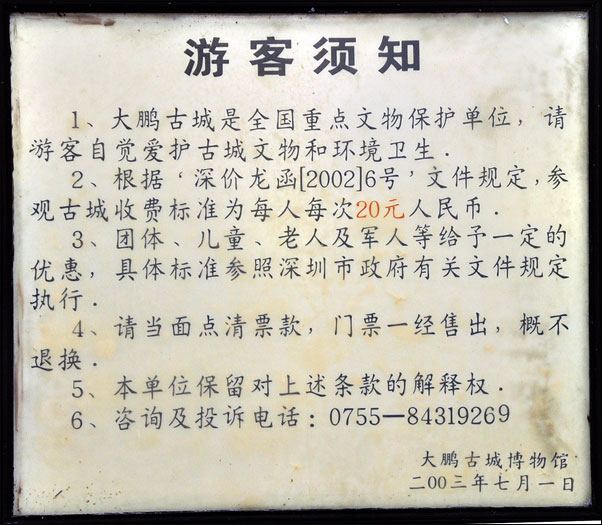 游客须知
1、大鹏古城是全国重点文物保护单位，请
游客自觉爱护古城文物和环境卫生．
2、根据‘深价龙函[2002]6号’文件规定，参
观古城收费标准为每人每次20元人民币．
3、团体、儿童、老人及军人等给予一定的
优惠，具体标准参照深圳市政府有关文件规定
执行．
4、请当面点清票款，门票一经售出，概不
退换．
5、本单位保留对上述条款的解释权．
6、咨询及投诉电话：0755—84319269
大鹏古城博物馆
二00三年七月一日